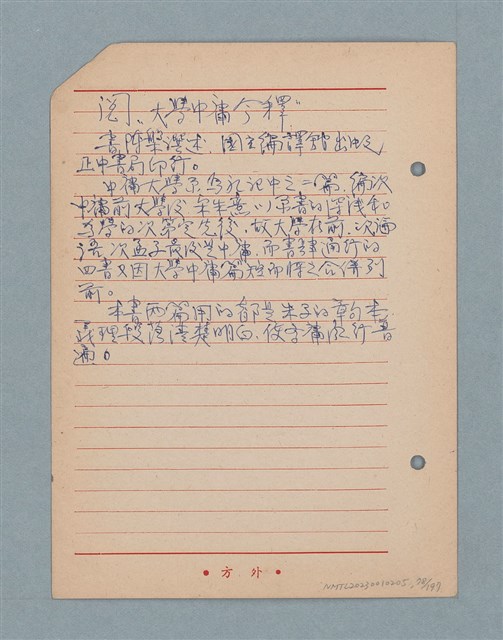 閱“大學中庸今釋”
書陳槃選本 國立編譯館出版
正中書局印行。
中庸大學系為禮記中之二篇、編次
中庸前大學後 宋朱熹以宋書的淺和
為學的次第定先後，故大學在前，次論
語次孟子最後是中庸。而書肆间行的
四書又因大學中庸篇短而將之合併列
前。
本書兩篇用的都是朱子的章句本
義理段落清楚明白、
通。
• 方 外 •
NMTL20230010205, 78/199